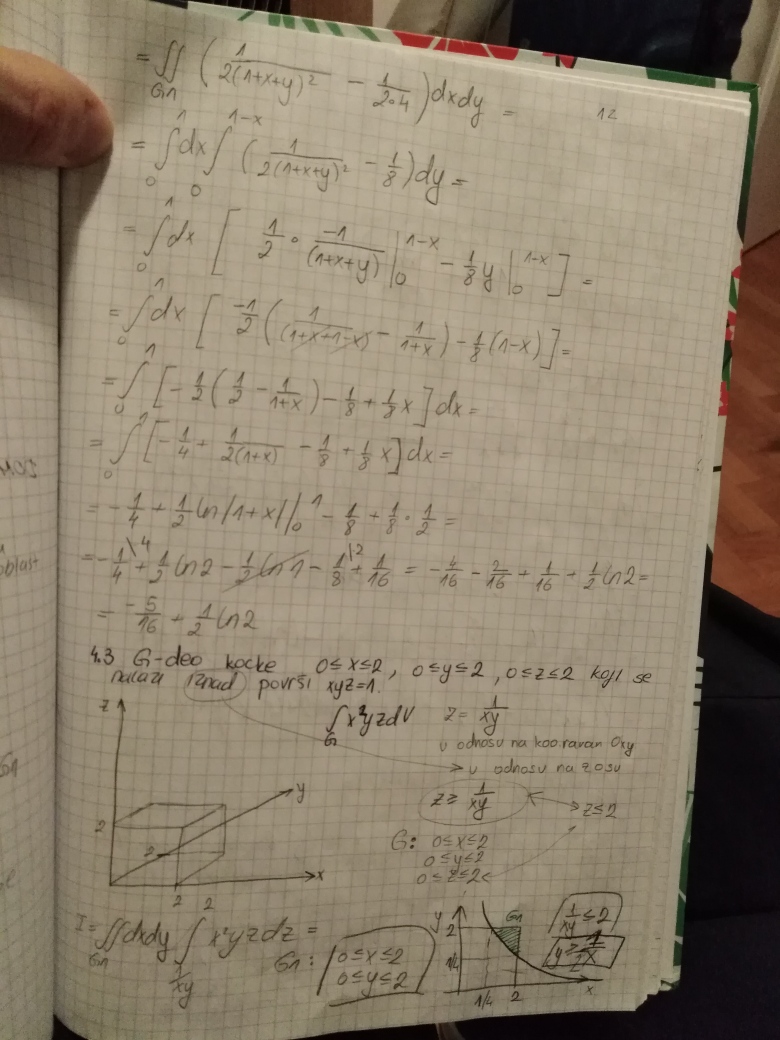 = ∬_{G1} ( 1/(2(1+x+y)²) - 1/(2·4) ) dxdy =
12
= ∫_0^1 dx ∫_0^{1-x} ( 1/(2(1+x+y)²) - 1/8 ) dy =
= ∫_0^1 dx [ 1/2 · -1/(1+x+y) |_0^{1-x} - 1/8 y |_0^{1-x} ] =
= ∫_0^1 dx [ -1/2 ( 1/(1+x+1-x) - 1/(1+x) ) - 1/8 (1-x) ] =
= ∫_0^1 [ - 1/2 ( 1/2 - 1/(1+x) ) - 1/8 + 1/8 x ] dx =
= ∫_0^1 [ - 1/4 + 1/(2(1+x)) - 1/8 + 1/8 x ] dx =
= - 1/4 + 1/2 ln|1+x| |_0^1 - 1/8 + 1/8 · 1/2 =
= - 1/4 \4 + 1/2 ln2 - 1/2 ln1 - 1/8 \2 + 1/16 = - 4/16 - 2/16 + 1/16 + 1/2 ln2 =
= -5/16 + 1/2 ln2
4.3 G-deo kocke 0≤x≤2, 0≤y≤2, 0≤z≤2 koji se
nalazi iznad površi xyz=1.
∫_G x²yzdV z = 1/xy
u odnosu na koo.ravan Oxy
u odnosu na zosu
z ≥ 1/xy z≤2
G: 0≤x≤2
0≤y≤2
0≤z≤2
z
y
x
2
2
2
2
I = ∬_{G1} dxdy ∫_{1/xy} x²yzdz =
G1: 0≤x≤2
0≤y≤2
y
2
1/4
G1
1/4
2
x
1/xy ≤ 2